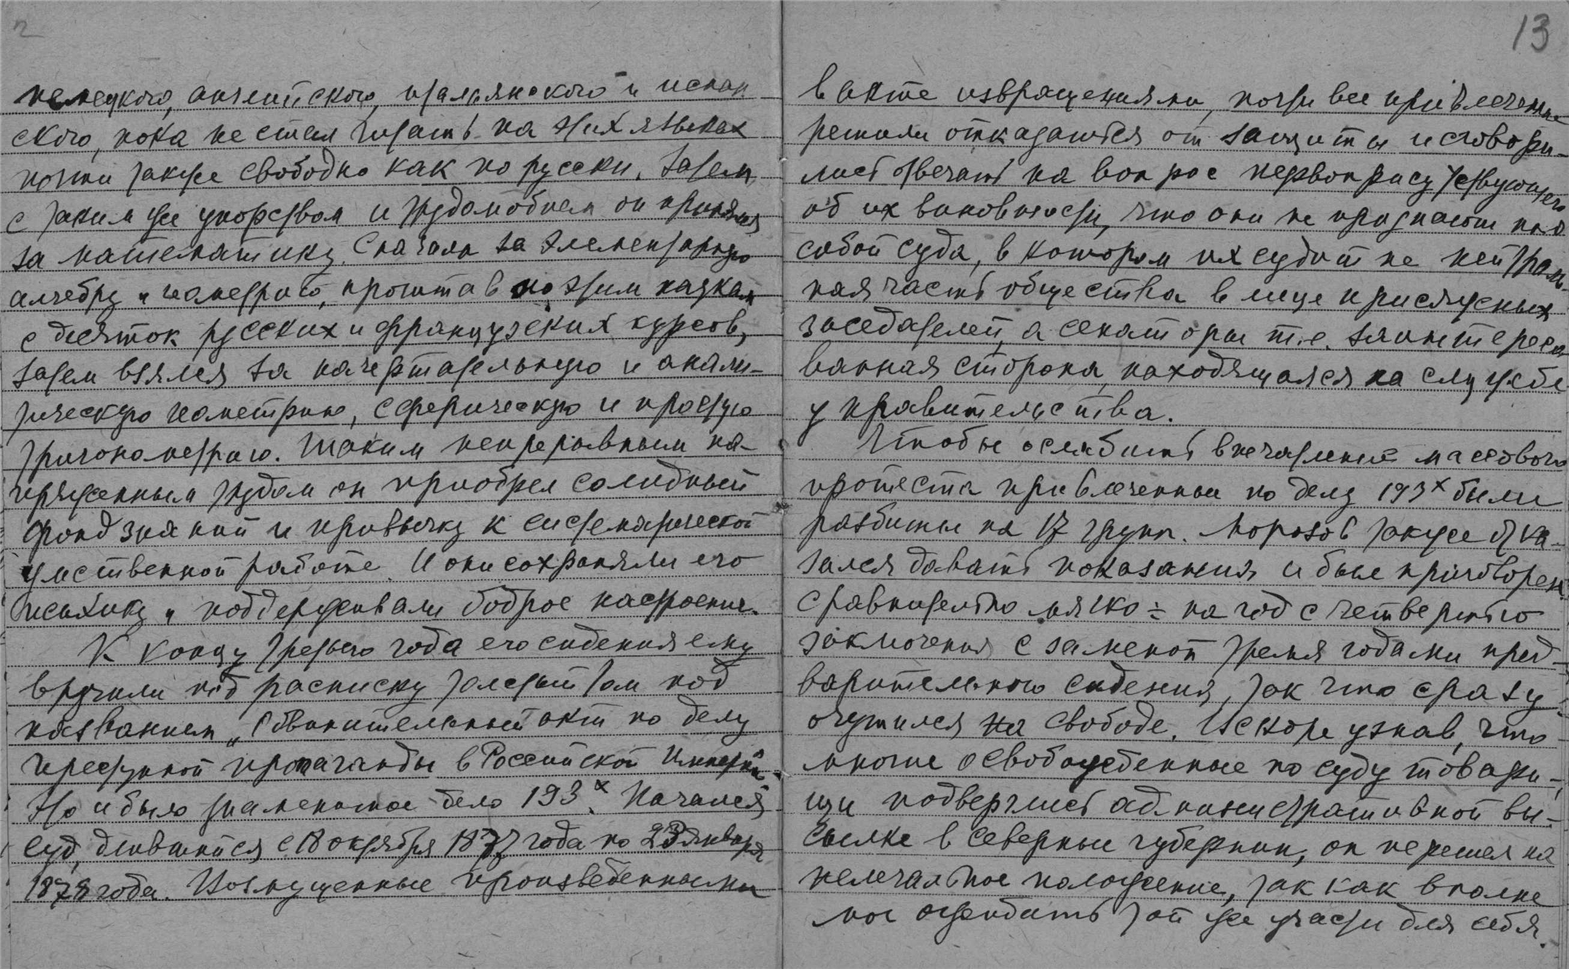 2
немецкого, английского, итальянского и испан
ского, пока не стал читать на этих языках
почти также свободно как по русски. Затем
с таким же упорством и трудолюбием он принялся
за математику. Сначала за элементарную
алгебру и геометрию, проштав по этим наукам
с десяток русских и французских курсов,
затем взялся за начертательную и анали-
тическую геометрию, сферическую и простую
тригонометрию. Таким непрерывным на-
пряженным трудом он приобрел солидный
фонд знаний и привычку к систематической
умственной работе. И они сохраняли его
психику и поддерживали бодрое настроение.
К концу третьего года его сидения ему
вручили под расписку толстый том под
названием „Обвинительный акт по делу
преступной пропаганды в Российской Империи".
Это и было знаменитое дело 193х. Начался
суд, длившийся с 18 октября 1877 года по 23 января
1878 года. Возмущенные произведенными
13
в акте извращениями, почти все привлеченные
решили отказаться от защиты и сговори-
лись отвечать на вопрос первоприсутствующего
об их виновности, что они не признают над
собой суда, в котором их судит не нейтраль-
ная часть общества в лице присяжных
заседателей, а сенаторы т.е. заинтересо
ванная сторона, находящаяся на службе
у правительства.
Чтобы ослабить впечатление массового
протеста привлеченные по делу 193х были
разбиты на 17 групп. Морозов также отка-
зался давать показания и был приговорен
сравнительно мягко = на год с четвертью
заключения с заменой тремя годами пред-
варительного сидения, так что сразу
очутился на свободе. Вскоре узнав, что
многие освобожденные по суду товари-
щи подверглись административной вы-
сылке в северные губернии, он перешел на
нелегальное положение, так как вполне
мог ожидать той же участи для себя.